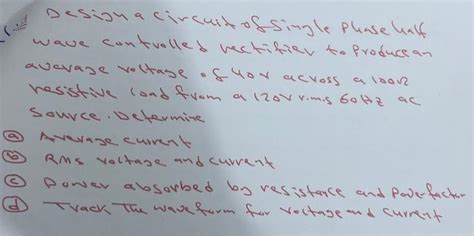 Design a circuit of single phase half
wave controlled rectifier to produce an
average voltage of 40v across a 100Ω
resistive load from a 120v r.m.s 60Hz ac
source. Determine
a Average current
b RMS voltage and current
c Power absorbed by resistance and power factor
d Track The waveform for voltage and current